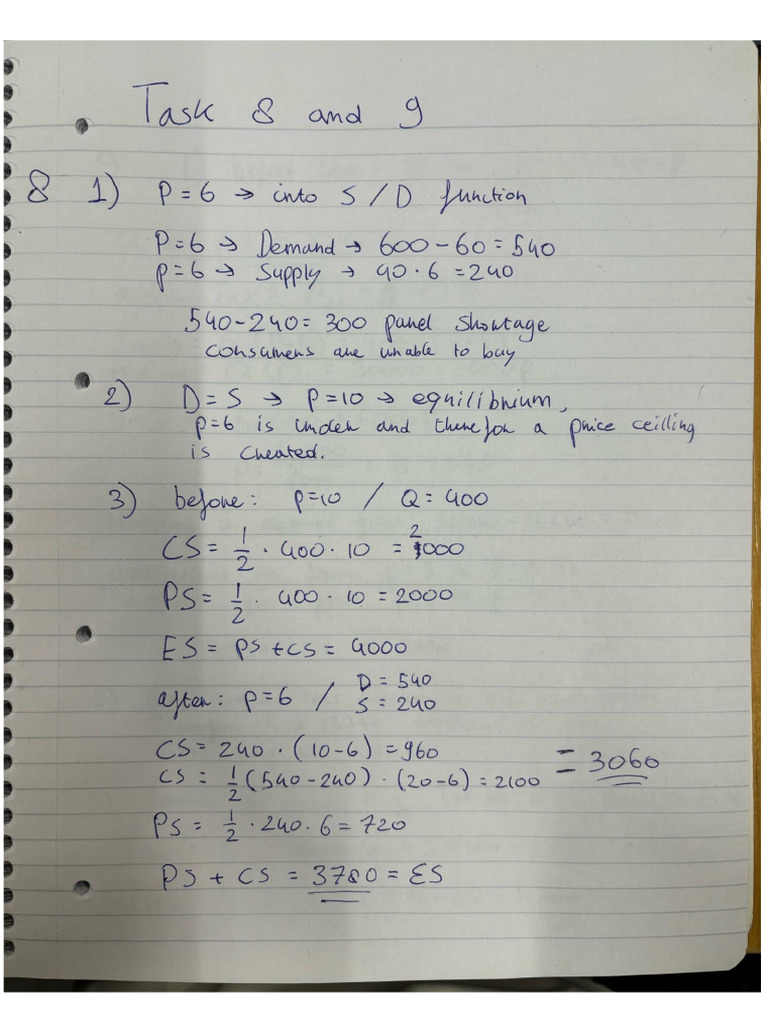 Task 8 and 9
8 1) P = 6 → into S / D function
P = 6 → Demand → 600 - 60 = 540
p = 6 → Supply → 40 · 6 = 240
540 - 240 = 300 panel shortage
consumers are unable to buy
2) D = S → P = 10 → equilibrium,
p = 6 is under and therefor a price ceilling
is created.
3) before: p = 10 / Q = 400
CS = 1/2 · 400 · 10 = 2000
PS = 1/2 · 400 · 10 = 2000
ES = PS + CS = 4000
after: p = 6 / D = 540
S = 240
CS = 240 · (10 - 6) = 960
CS = 1/2 (540 - 240) · (20 - 6) = 2100 = 3060
PS = 1/2 · 240 · 6 = 720
PS + CS = 3780 = ES